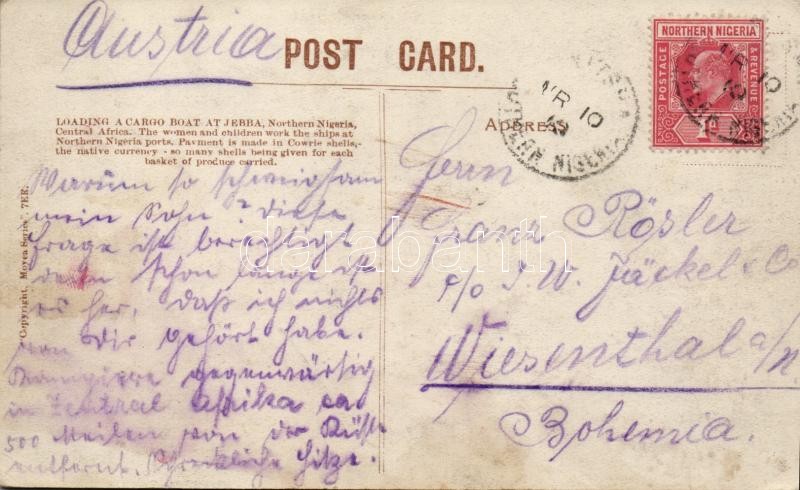 Austria
POST CARD.
NORTHERN NIGERIA
POSTAGE
& REVENUE
1D
LOADING A CARGO BOAT AT JEBBA, Northern Nigeria,
Central Africa. The women and children work the ships at
Northern Nigeria ports. Payment is made in Cowrie shells,
the native currency - so many shells being given for each
basket of produce carried.
ADDRESS
Copyright, Moyea Series 7EE.
Warum so schweigsam
mein Sohn? Diese
Frage ist berechtigt
denn schon lange ist
es her, daß ich nichts
von Dir gehört habe.
Kampiere gegenwärtig
in Zentral Afrika ca
500 Meilen von der Küste
entfernt. Schreckliche Hitze.
Herrn
Franz Rösler
c/o J. W. Jäckel & Co
Wiesenthal a/N
Bohemia.
10
NORTHERN NIGERIA
darabanth